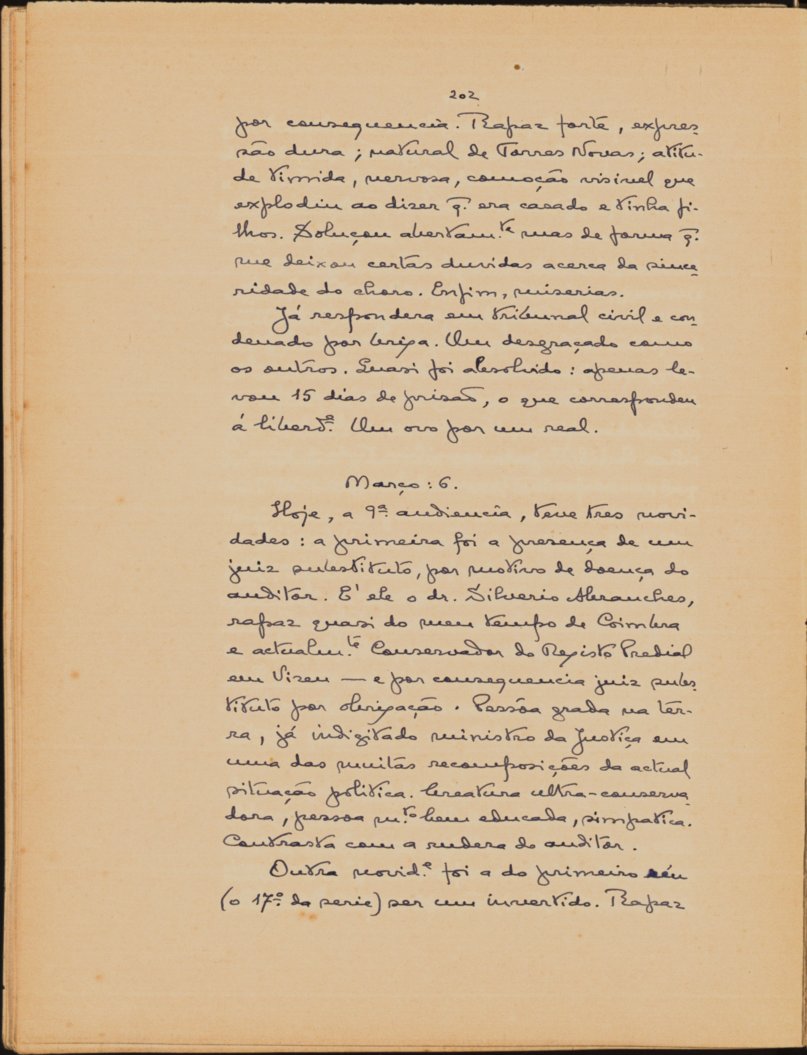 202
por consequencia. Rapaz forte, expres-
são dura; natural de Torres Novas; atitu-
de timida, nervosa, comoção visivel que
explodiu ao dizer q̃. era casado e tinha fi-
lhos. Soluçou abertam.te mas de forma q̃.
me deixou certas duvidas acerca da since-
ridade do choro. Enfim, miserias.
Já respondera em tribunal civil e con-
denado por briga. Um desgraçado como
os outros. Quasi foi absolvido: apenas le-
vou 15 dias de prisaõ, o que correspondeu
á liberd.e Um ovo por um real.
Março: 6.
Hoje, a 9ª audiencia, teve tres novi-
dades: a primeira foi a presença de um
juiz substituto, por motivo de doença do
auditor. E' ele o dr. Silverio Abranches,
rapaz quasi do meu tempo de Coimbra
e actualm.te Conservador do Registo Predial
em Vizeu — e por consequencia juiz subs-
tituto por obrigação. Pessôa grada na ter-
ra, já indigitado ministro da Justiça em
uma das muitas recomposições da actual
situação politica. Creatura ultra-conserva-
dora, pessoa m.to bem educada, simpatica.
Contrasta com a rudeza do auditor.
Outra novid.e foi a do primeiro réu
(o 17º da serie) ser um invertido. Rapaz